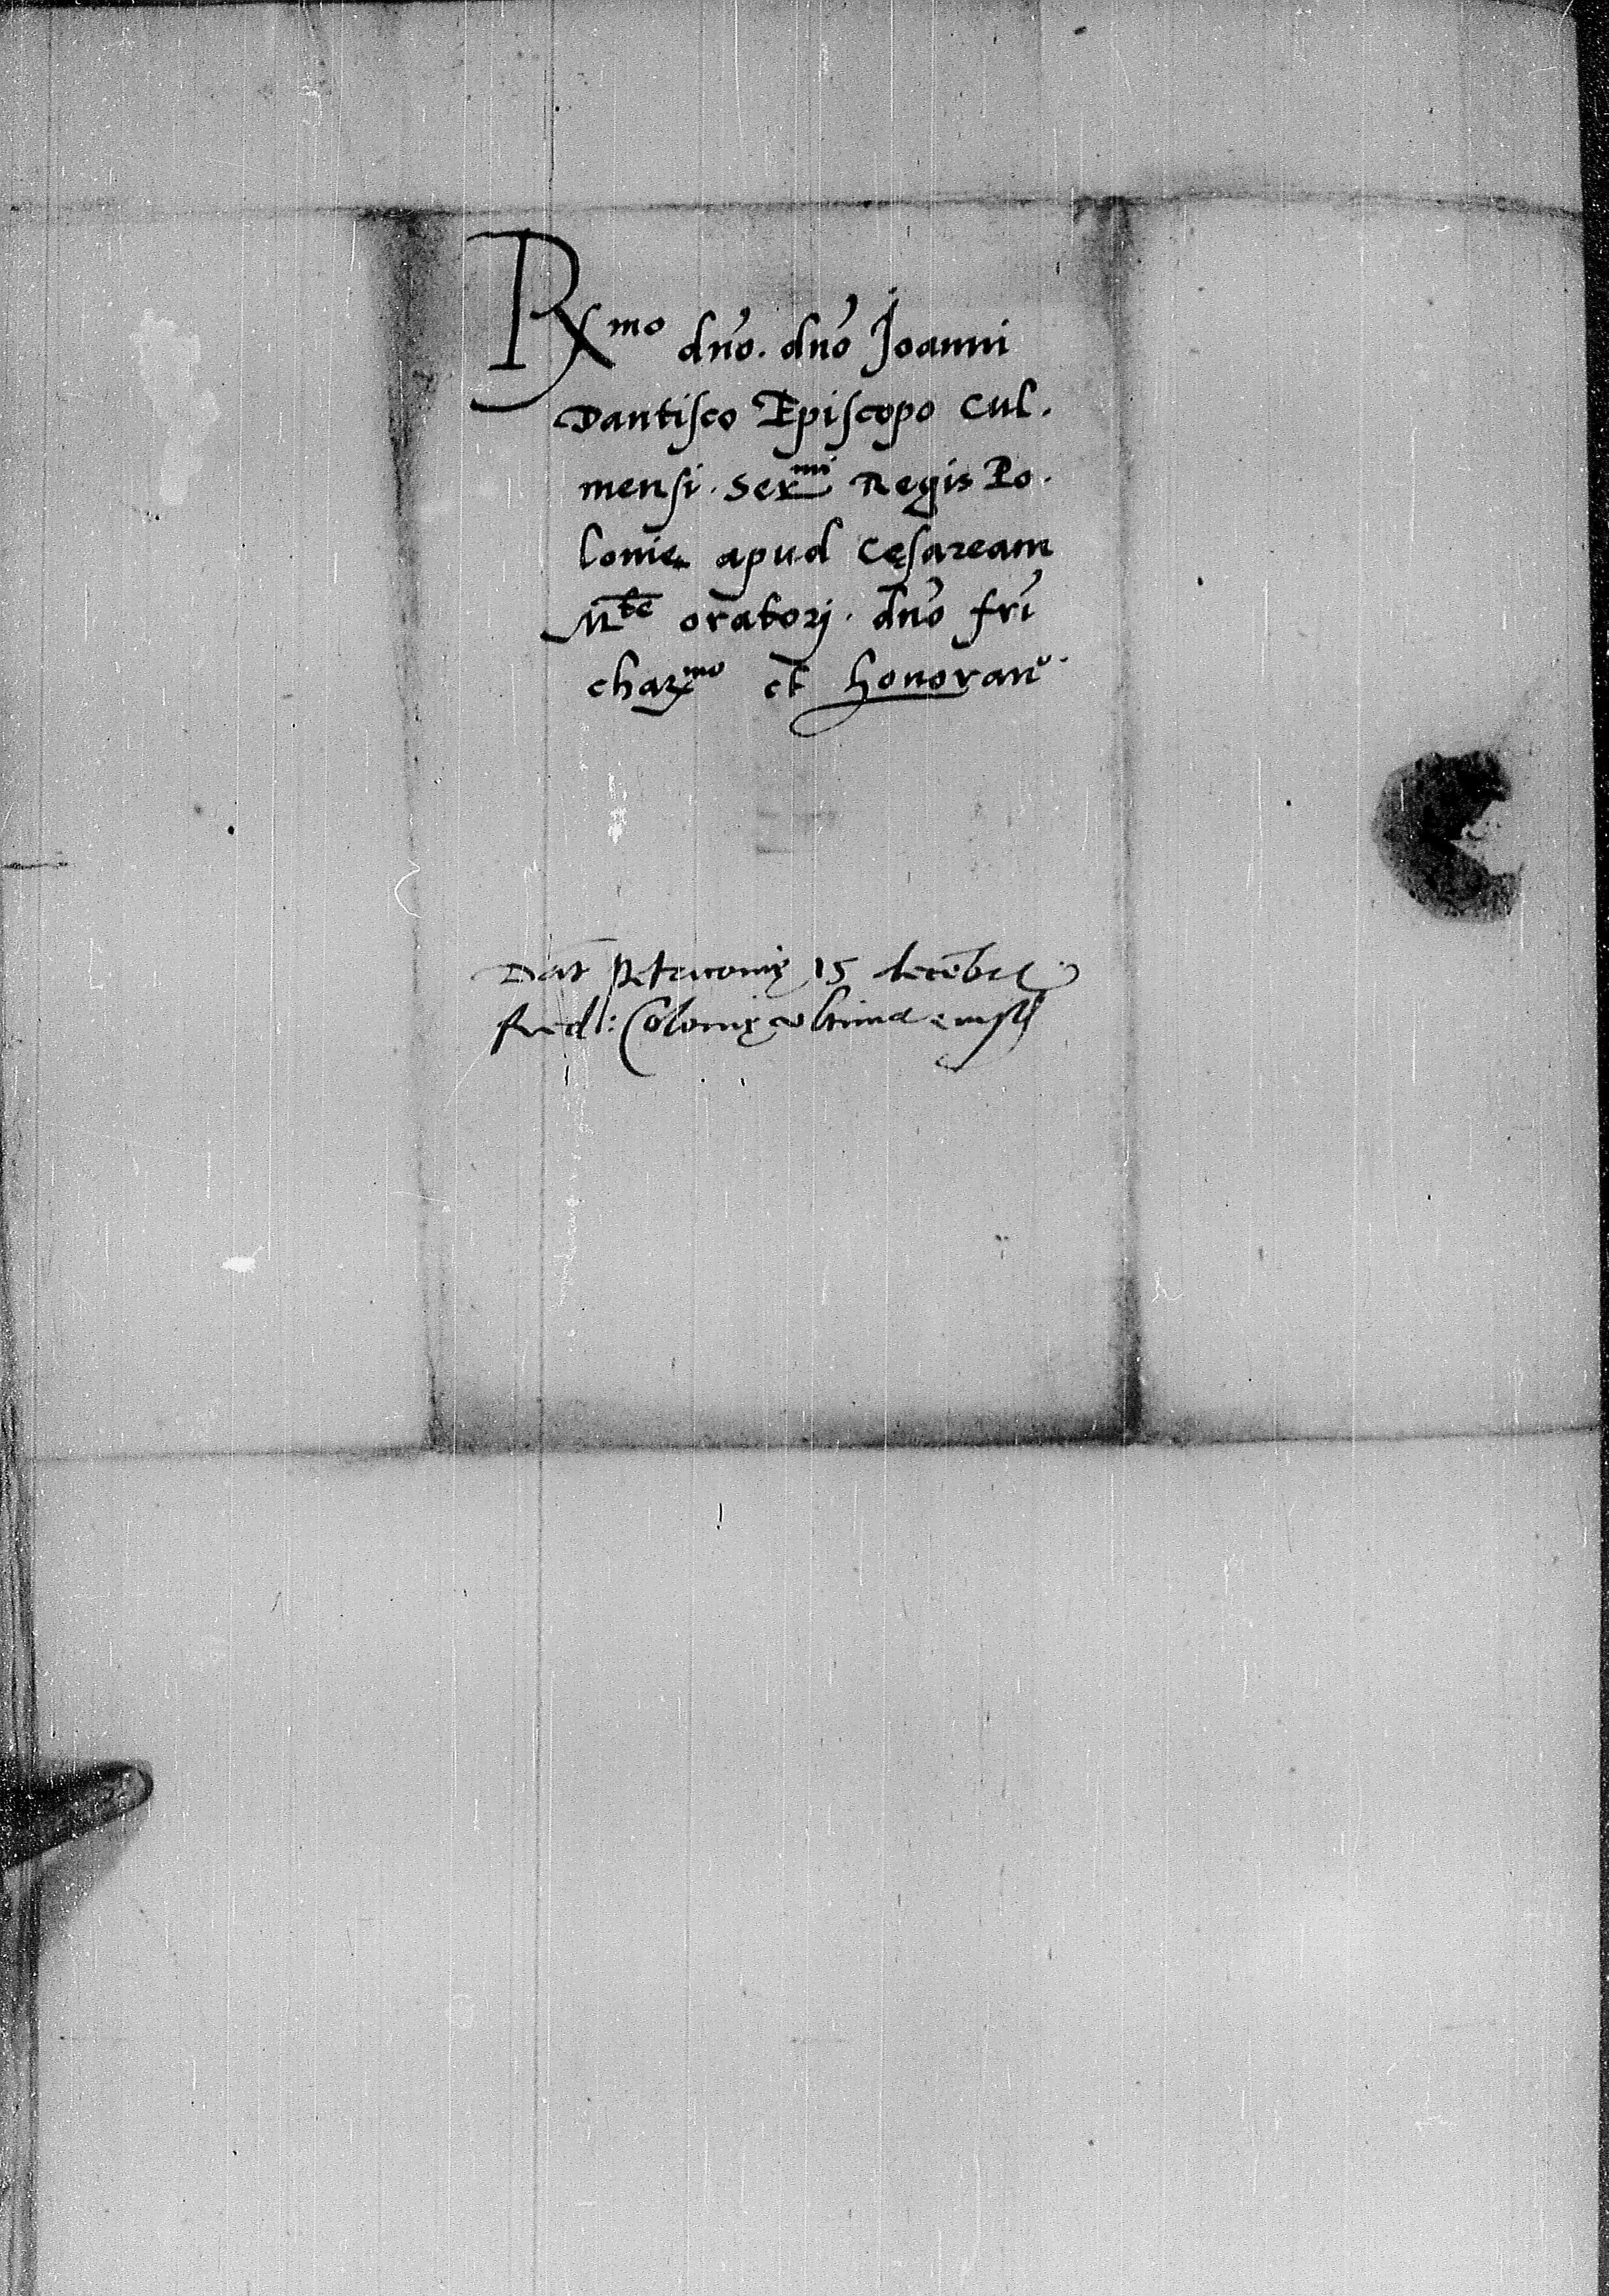 Rx^mo dño. dño Joanni
Dantisco Episcopo Cul.
mensi. Ser^mi Regis Po.
lonie apud Cęsaream
M^te oratorj. dño fri
char^mo et honoran^o.
Dat 15 decēbr
Red: Colonię ultima